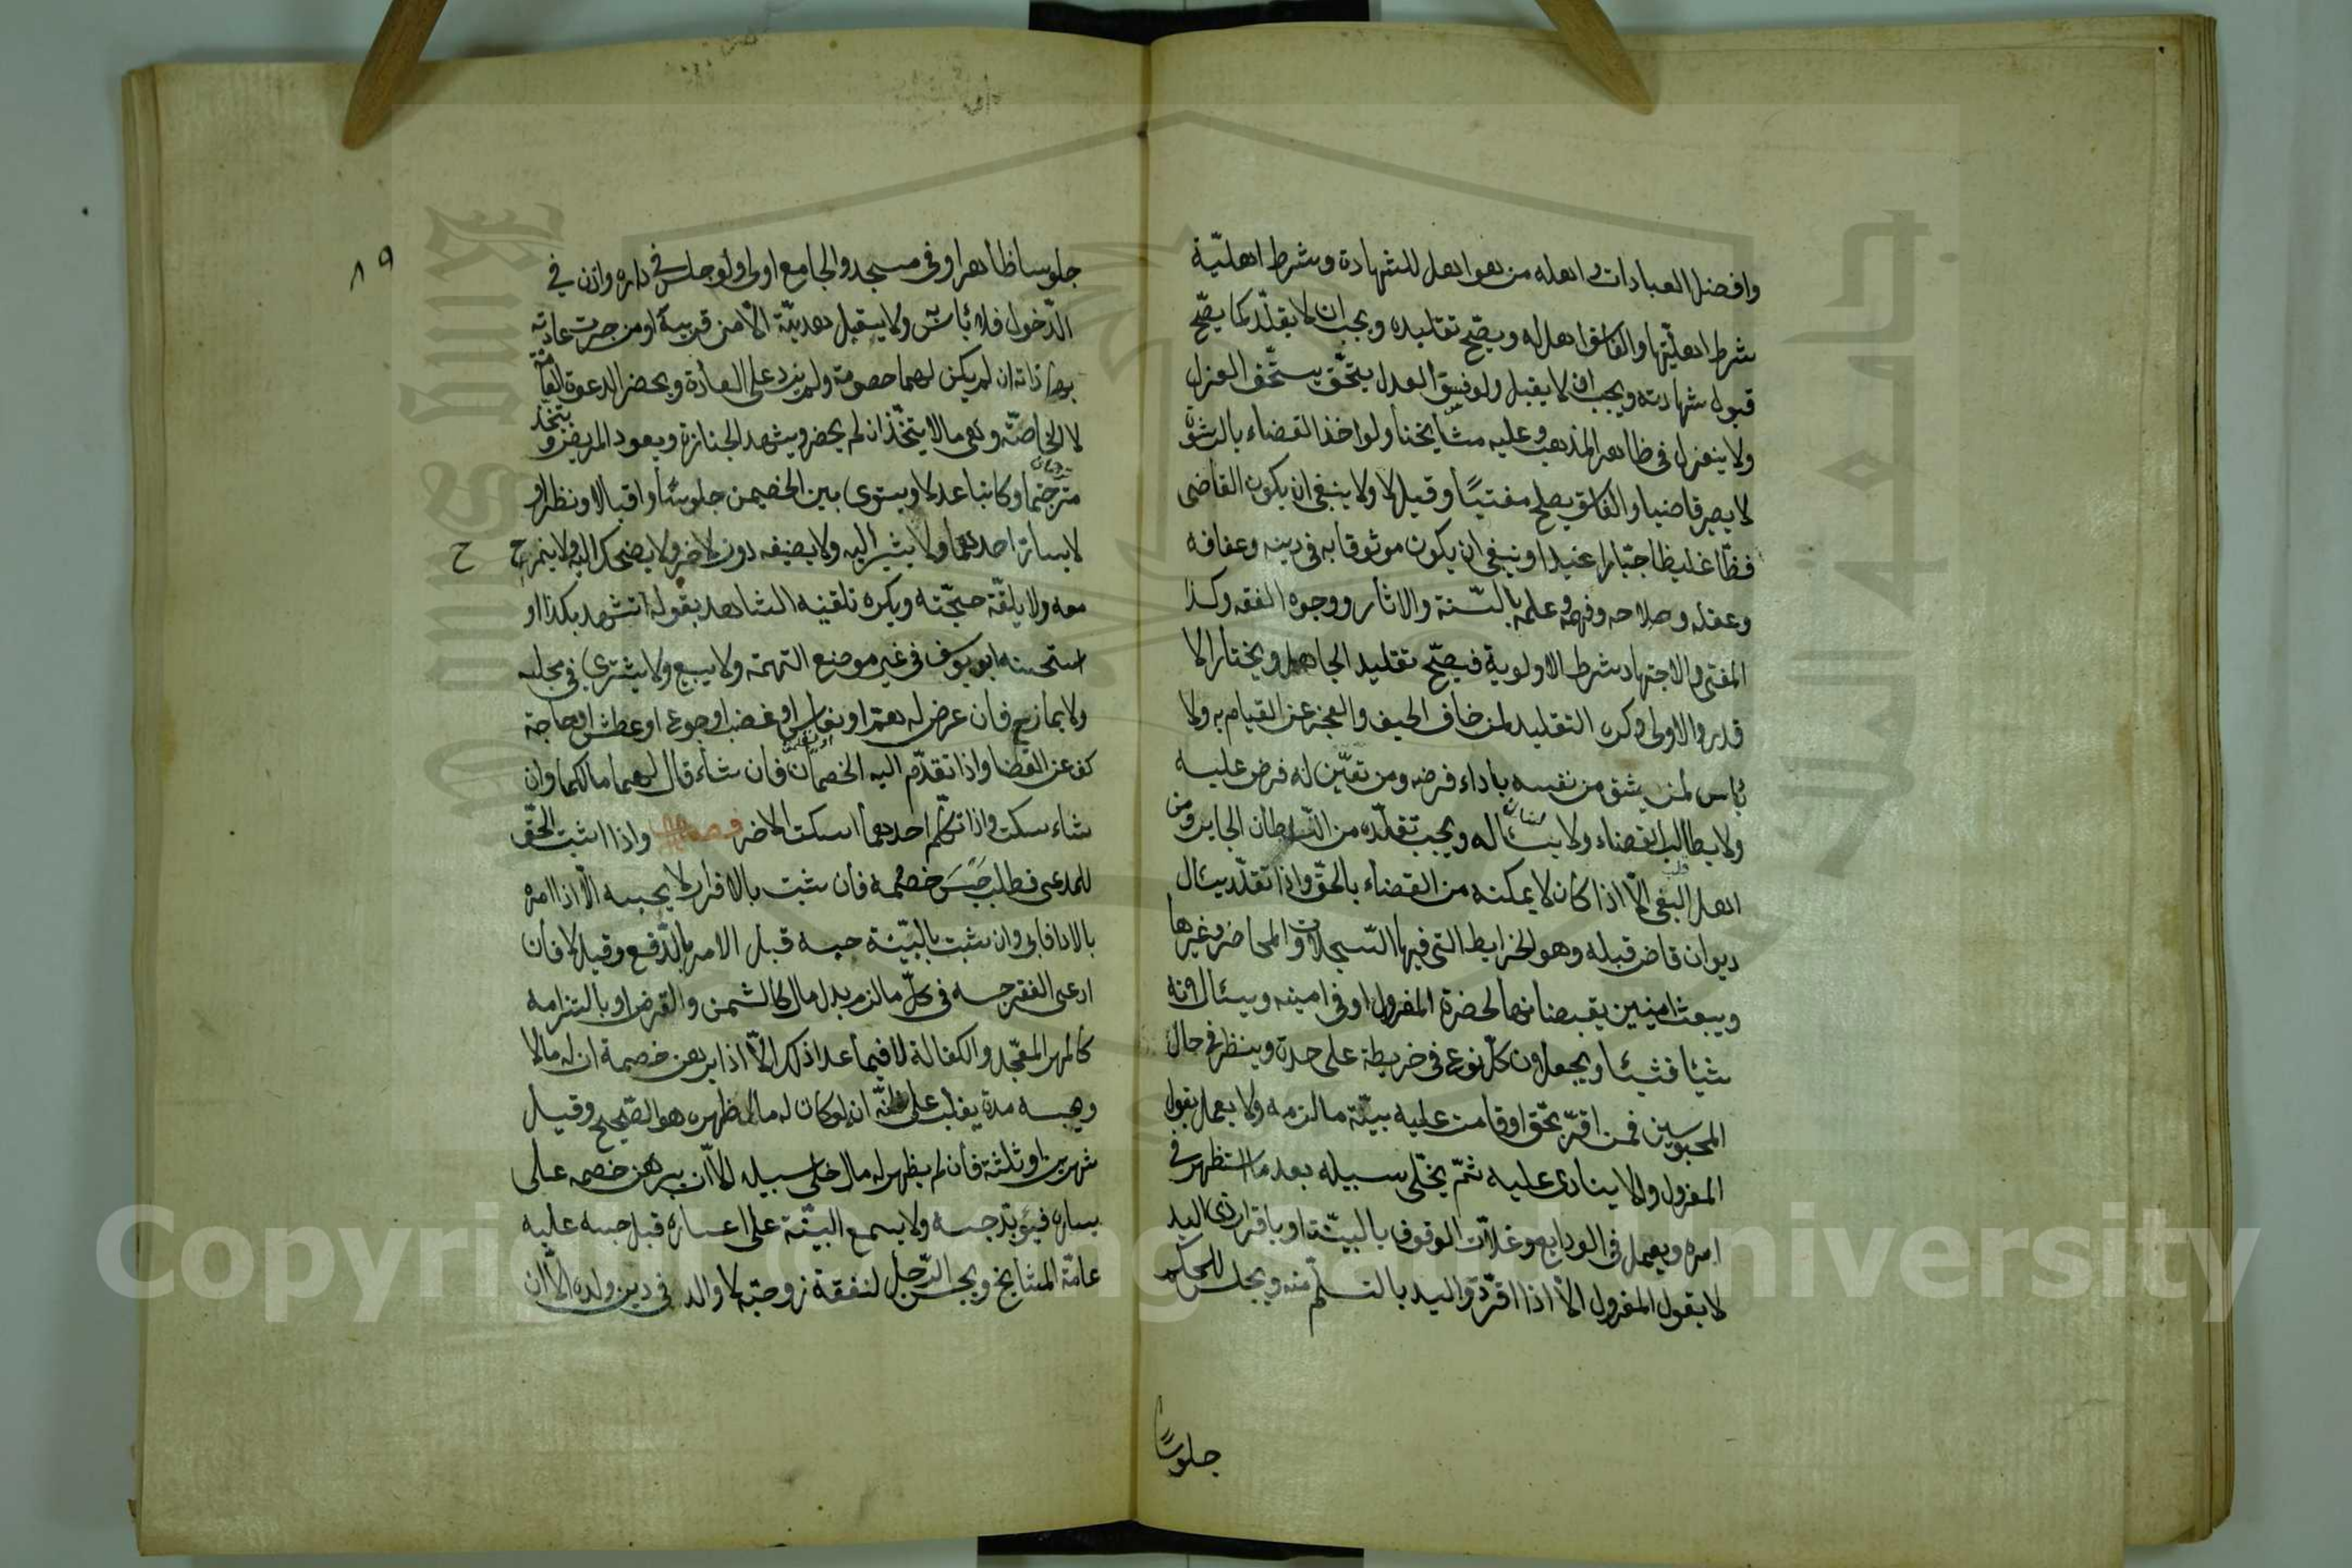 وافضل العبادات واهله من هو اهل للشهادة وشرط اهليّة
شرط اهليّتها والفاسق اهل له ويصّح تقليده ويجب ان لا يقلّد كما يصّح
قبول شهادته ويجب ان لا يقبل ولو فسق العدل يستحّق العزل
ولا ينعزل فى ظاهر المذهب وعليه مشايخنا ولو اخذ القضاء بالرشوة
لا يصير قاضيا والفاسق يصلح مفتيًا وقيل لا ولا ينبغى ان يكون القاضى
فظّا غليظا جبّارا عنيدا وينبغى ان يكون موثوقا به فى دينه وعفافه
وعقله وصلاحه وفهمه وعلمه بالسّنة والاثار ووجوه الفقه وكذا
المفتى والاجتهاد شرط الاولوية فيصّح تقليد الجاهل ويختار الا
قدر والاولى وكره التقليد لمن خاف الحيف والعجز عن القيام به ولا
بأس لمن يثق من نفسه باداء فرضه ومن تعيّن له فرض عليه
ولا يطالب القضاء ولا يسئاله ويجب تقلّده من السّلطان الجاير ومن
اهل البغى الّا اذا كان لا يمكنه من القضاء بالحقّ واذا تقلّد يسئال
ديوان قاض قبله وهو الخرايط التى فيها السّجلات والمحاضر وغيرها
ويبعث امينين يقبضانها لحضرة المعزول او فى امينه ويسئالانه
شيئا فشيئا ويجعلون كلّ نوع فى خريطة على حدة وينظر فى حال
المحبوسين فمن اقرّ بحّق او قامت عليه بيّنة ما الزمه ولا يعمل بقول
المعزول والا ينادى عليه ثمّ يخلّى سبيله بعد ما استظهر فى
امره ويعمل فى الودايع وغلاّت الوقوف بالبيّنة او باقرار ذى اليد
لا بقول المعزول الّا اذا اقرّ ذو اليد بالتسلّم منه ويجلس للحكم
جلوسًا
٨٩
جلوسا ظاهرا وفى مسجد والجامع اولى ولو جلس فى داره واذن فى
الدّخول فلا بأس به ولا يستقبل هديّة الّا من قريبه او من جرت عادته
بمهاداته ان لم يكن لهما خصومة ولم يزد على العادة ويحضر الدعوة العامّة
لا الخاصّة وهى مالا يتخّذ ان لم يحضر ويشهد الجنازة ويعود المريض ويتخذ
مترجما وكاتبا عدلا ويستوى بين الخصمين جلوسًا واقبالا ونظرا و
لا يسارّ احدهما ولا يشير اليه ولا يضيفه دون الاخر ولا يضحك اليه ولا يمزح ح
معه ولا يلقّنه حجّته ويكره تلقينه الشاهد بقوله اتشهد بكذا او
استحسنه ابو يوسف فى غير موضع التهمة ولا يبيع ولا يشترى فى مجلسه
ولا يمازح فان عرض له همّ او نعاس او غضب او جوع او عطش او حاجة
كف عن القضا واذا تقدّم اليه الخصمان فان شاء قال لهما مالكما وان
شاء سكت واذا تكلّم احدهما اسكت الاخر فصل واذا اثبت الحّق
للمدعى فطلب حَبسَ خصمه فان ثبت بالاقرار لا يحبسه الّا اذا امره
بالادا فابى وان ثبت بالبيّنة حبسه قبل الامر بالدّفع وقيل لا فان
ادعى الفقر حبسه فى كلّ ما لزم بدل مال كالثمن والقرض او بالتزامه
كالمهر المعّجل والكفالة لا فيما عدا ذلك الّا اذا برهن خصمه ان له مالا
وحبسه مدة يغلب على ظنّه انه لو كان له مال لظهره هو الصّحيح وقيل
شهرين او ثلثة فان لم يظهر له مال خلى سبيله الّا ان يبرهن خصمه على
يساره فيؤبّد حبسه ولا يسمع البيّنة على اعساره قبل حبسه عليه
عامّة المشايخ ويحبس الرّجل لنفقة زوجتّه لا والد فى دين ولده الّا ان
Copyright © King Saud University